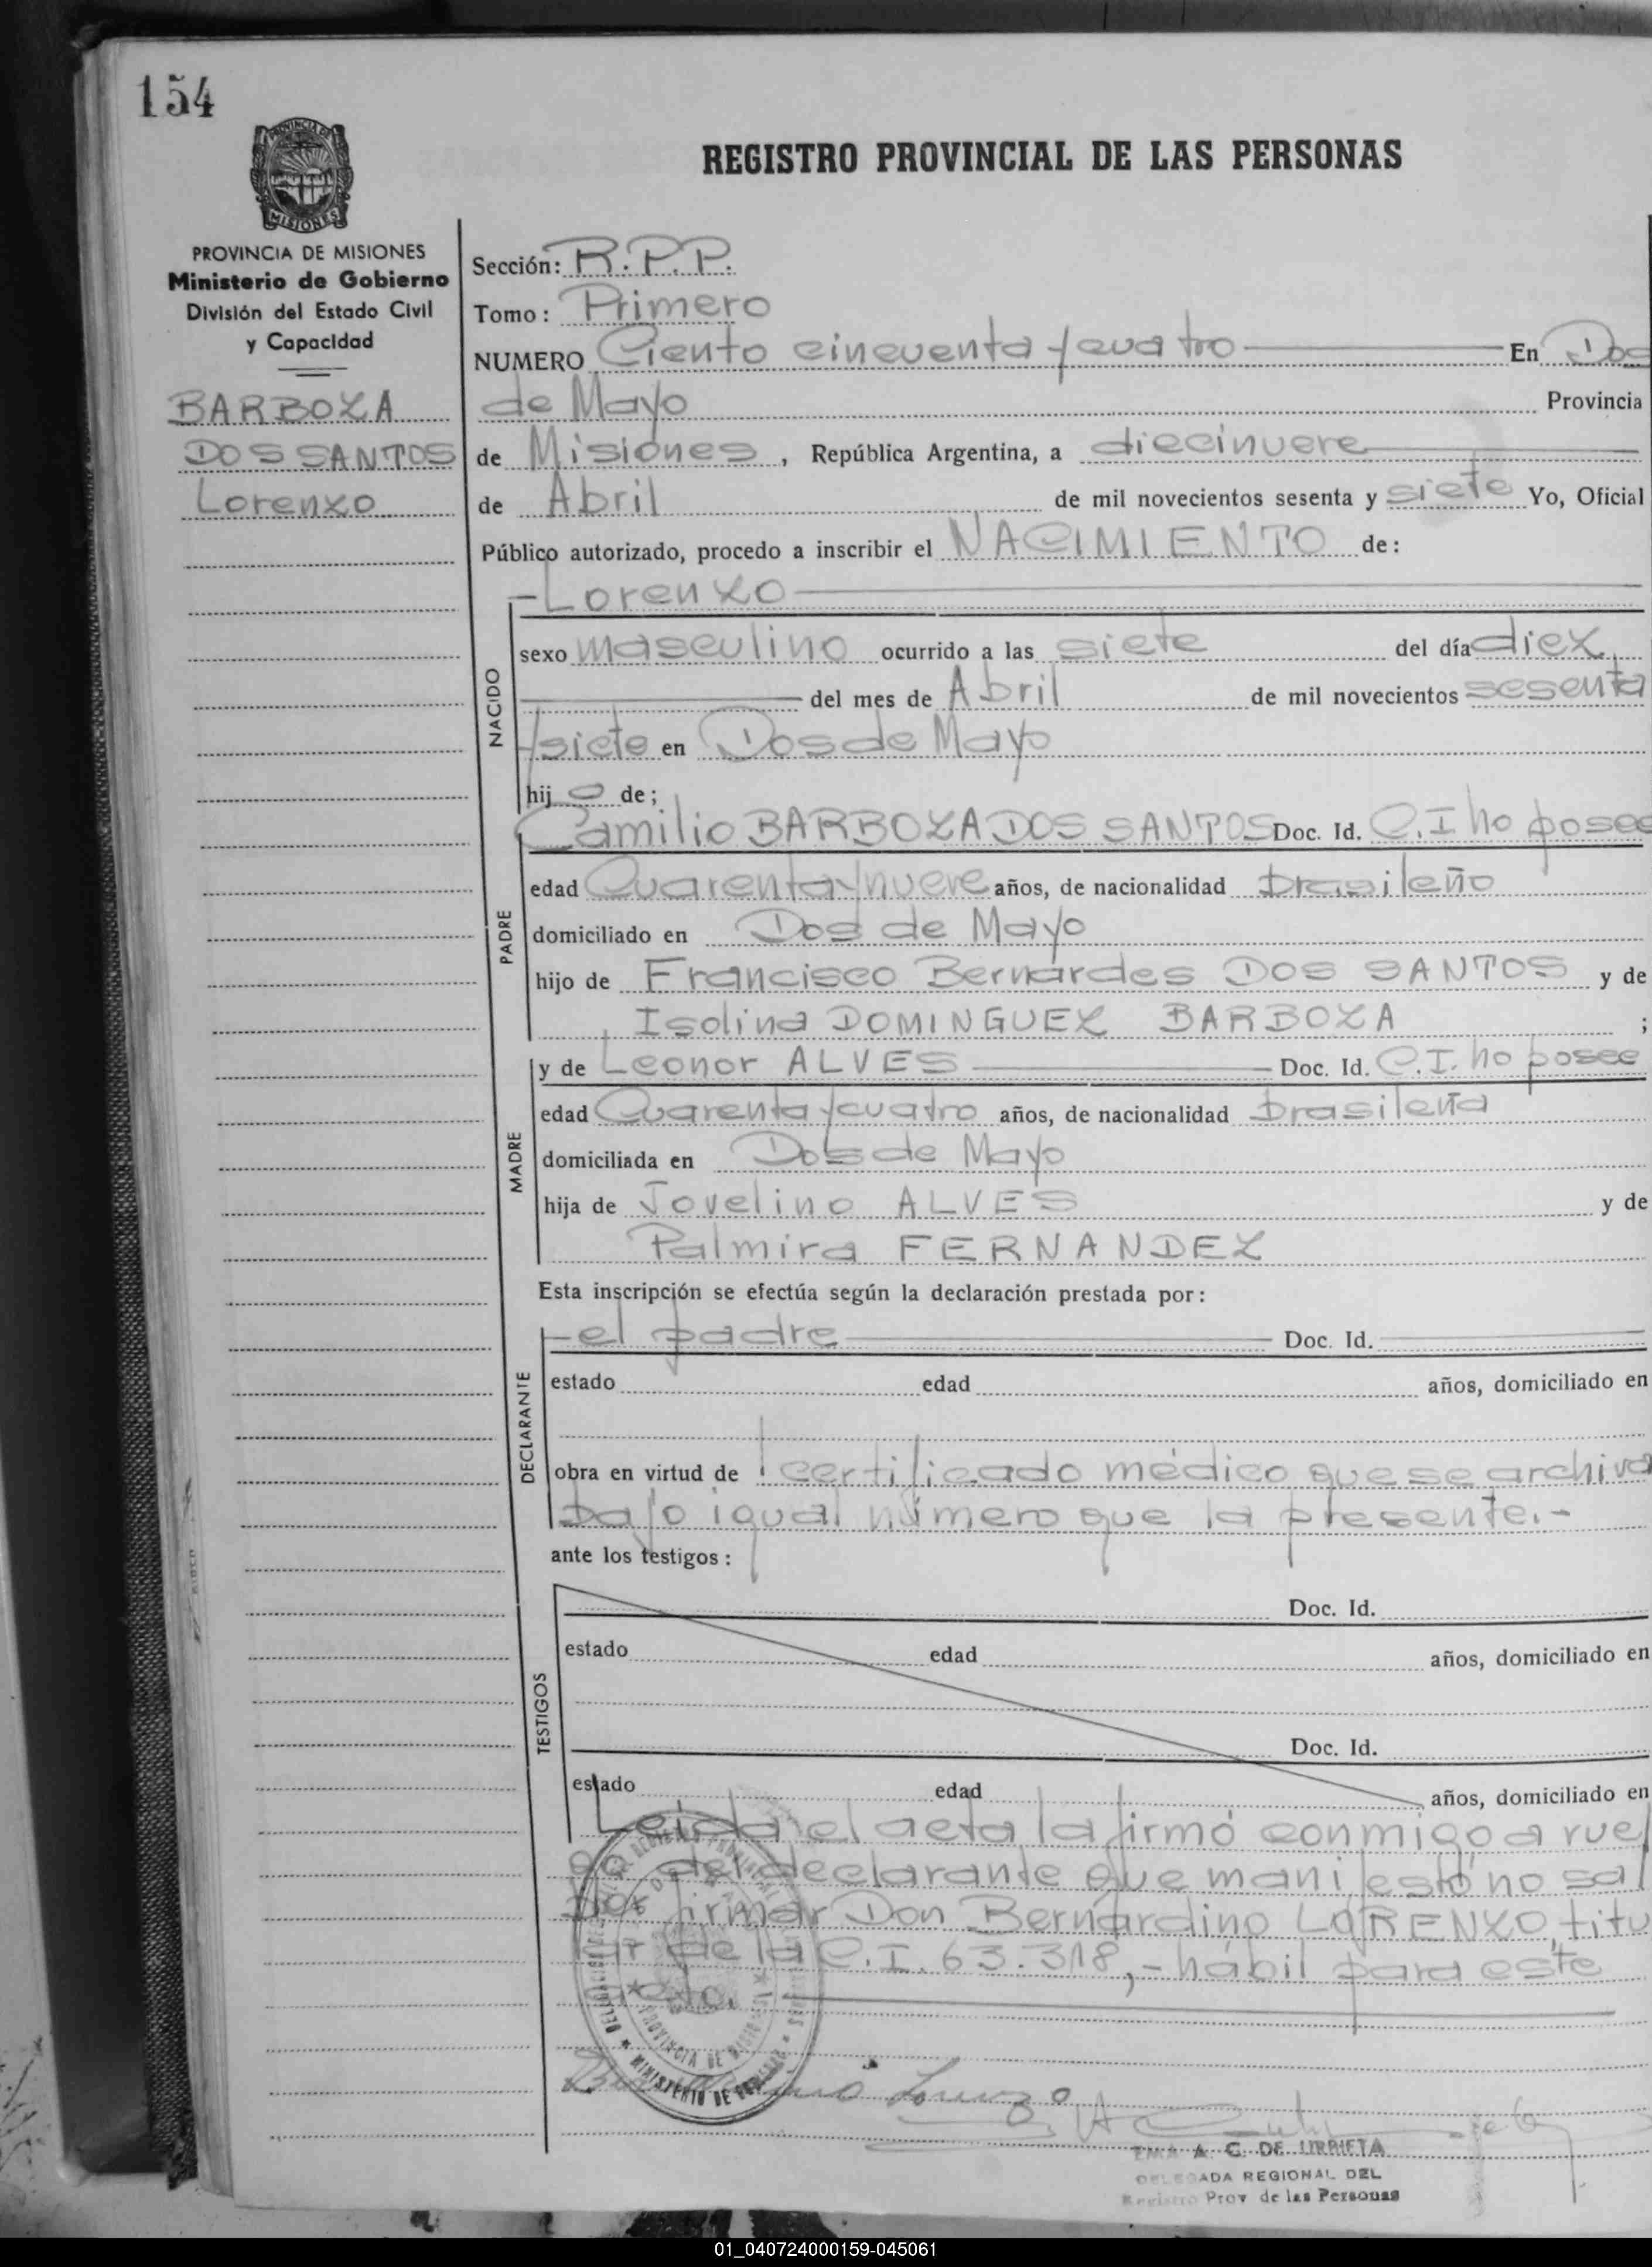 154
PROVINCIA DE MISIONES
REGISTRO PROVINCIAL DE LAS PERSONAS
PROVINCIA DE MISIONES
Ministerio de Gobierno
División del Estado Civil
y Capacidad
BARBOZA
DOS SANTOS
Lorenzo
Sección: R.P.P.
Tomo: Primero
NUMERO Ciento cincuenta y cuatro En Dos
de Mayo Provincia
de Misiones, República Argentina, a diecinueve
de Abril de mil novecientos sesenta y siete Yo, Oficial
Público autorizado, procedo a inscribir el NACIMIENTO de:
NACIDO
-Lorenzo
sexo masculino ocurrido a las siete del día diez
del mes de Abril de mil novecientos sesenta
y siete en Dos de Mayo
hijo de;
PADRE
Camilio BARBOZA DOS SANTOS Doc. Id. C.I no posee
edad Cuarenta y nueve años, de nacionalidad brasileño
domiciliado en Dos de Mayo
hijo de Francisco Bernardes DOS SANTOS y de
Isolina DOMINGUEZ BARBOZA ;
MADRE
y de Leonor ALVES Doc. Id. C.I. no posee
edad Cuarenta y cuatro años, de nacionalidad brasileña
domiciliada en Dos de Mayo
hija de Jovelino ALVES y de
Palmira FERNANDEZ
Esta inscripción se efectúa según la declaración prestada por:
DECLARANTE
-el padre Doc. Id.
estado edad años, domiciliado en
obra en virtud de certificado médico que se archiva
bajo igual número que la presente.-
ante los testigos:
TESTIGOS
Doc. Id.
estado edad años, domiciliado en
Doc. Id.
estado edad años, domiciliado en
Leida el acta la firmó conmigo a rue
go del declarante que manifestó no sa
ber firmar Don Bernardino LORENZO, titu
lar de la C.I. 63.318,- hábil para este
acto.
PROVINCIA DE MISIONES
MINISTERIO DE GOBIERNO
Bernardino Lorenzo
EMA A. G. DE URRIETA
DELEGADA REGIONAL DEL
Registro Prov de las Personas
01_040724000159-045061